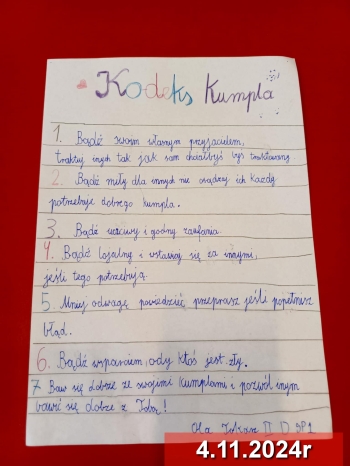 Kodeks Kumpla
1. Bądź swoim własnym przyjacielem,
traktuj innych tak jak sam chciałbyś być traktowany.
2. Bądź miły dla innych nie osądzaj ich każdy
potrzebuje dobrego kumpla.
3. Bądź uczciwy i godny zaufania.
4. Bądź lojalny i wstawiaj się za innymi,
jeśli tego potrzebują.
5. Miej odwagę powiedzieć przeprasz jeśli popełnisz
błąd.
6. Bądź wsparciem, gdy ktoś jest zły.
7 Baw się dobrze ze swoimi kumplami i pozwól innym
bawić się dobrze z Tobą!
Ola
4.11.2024r